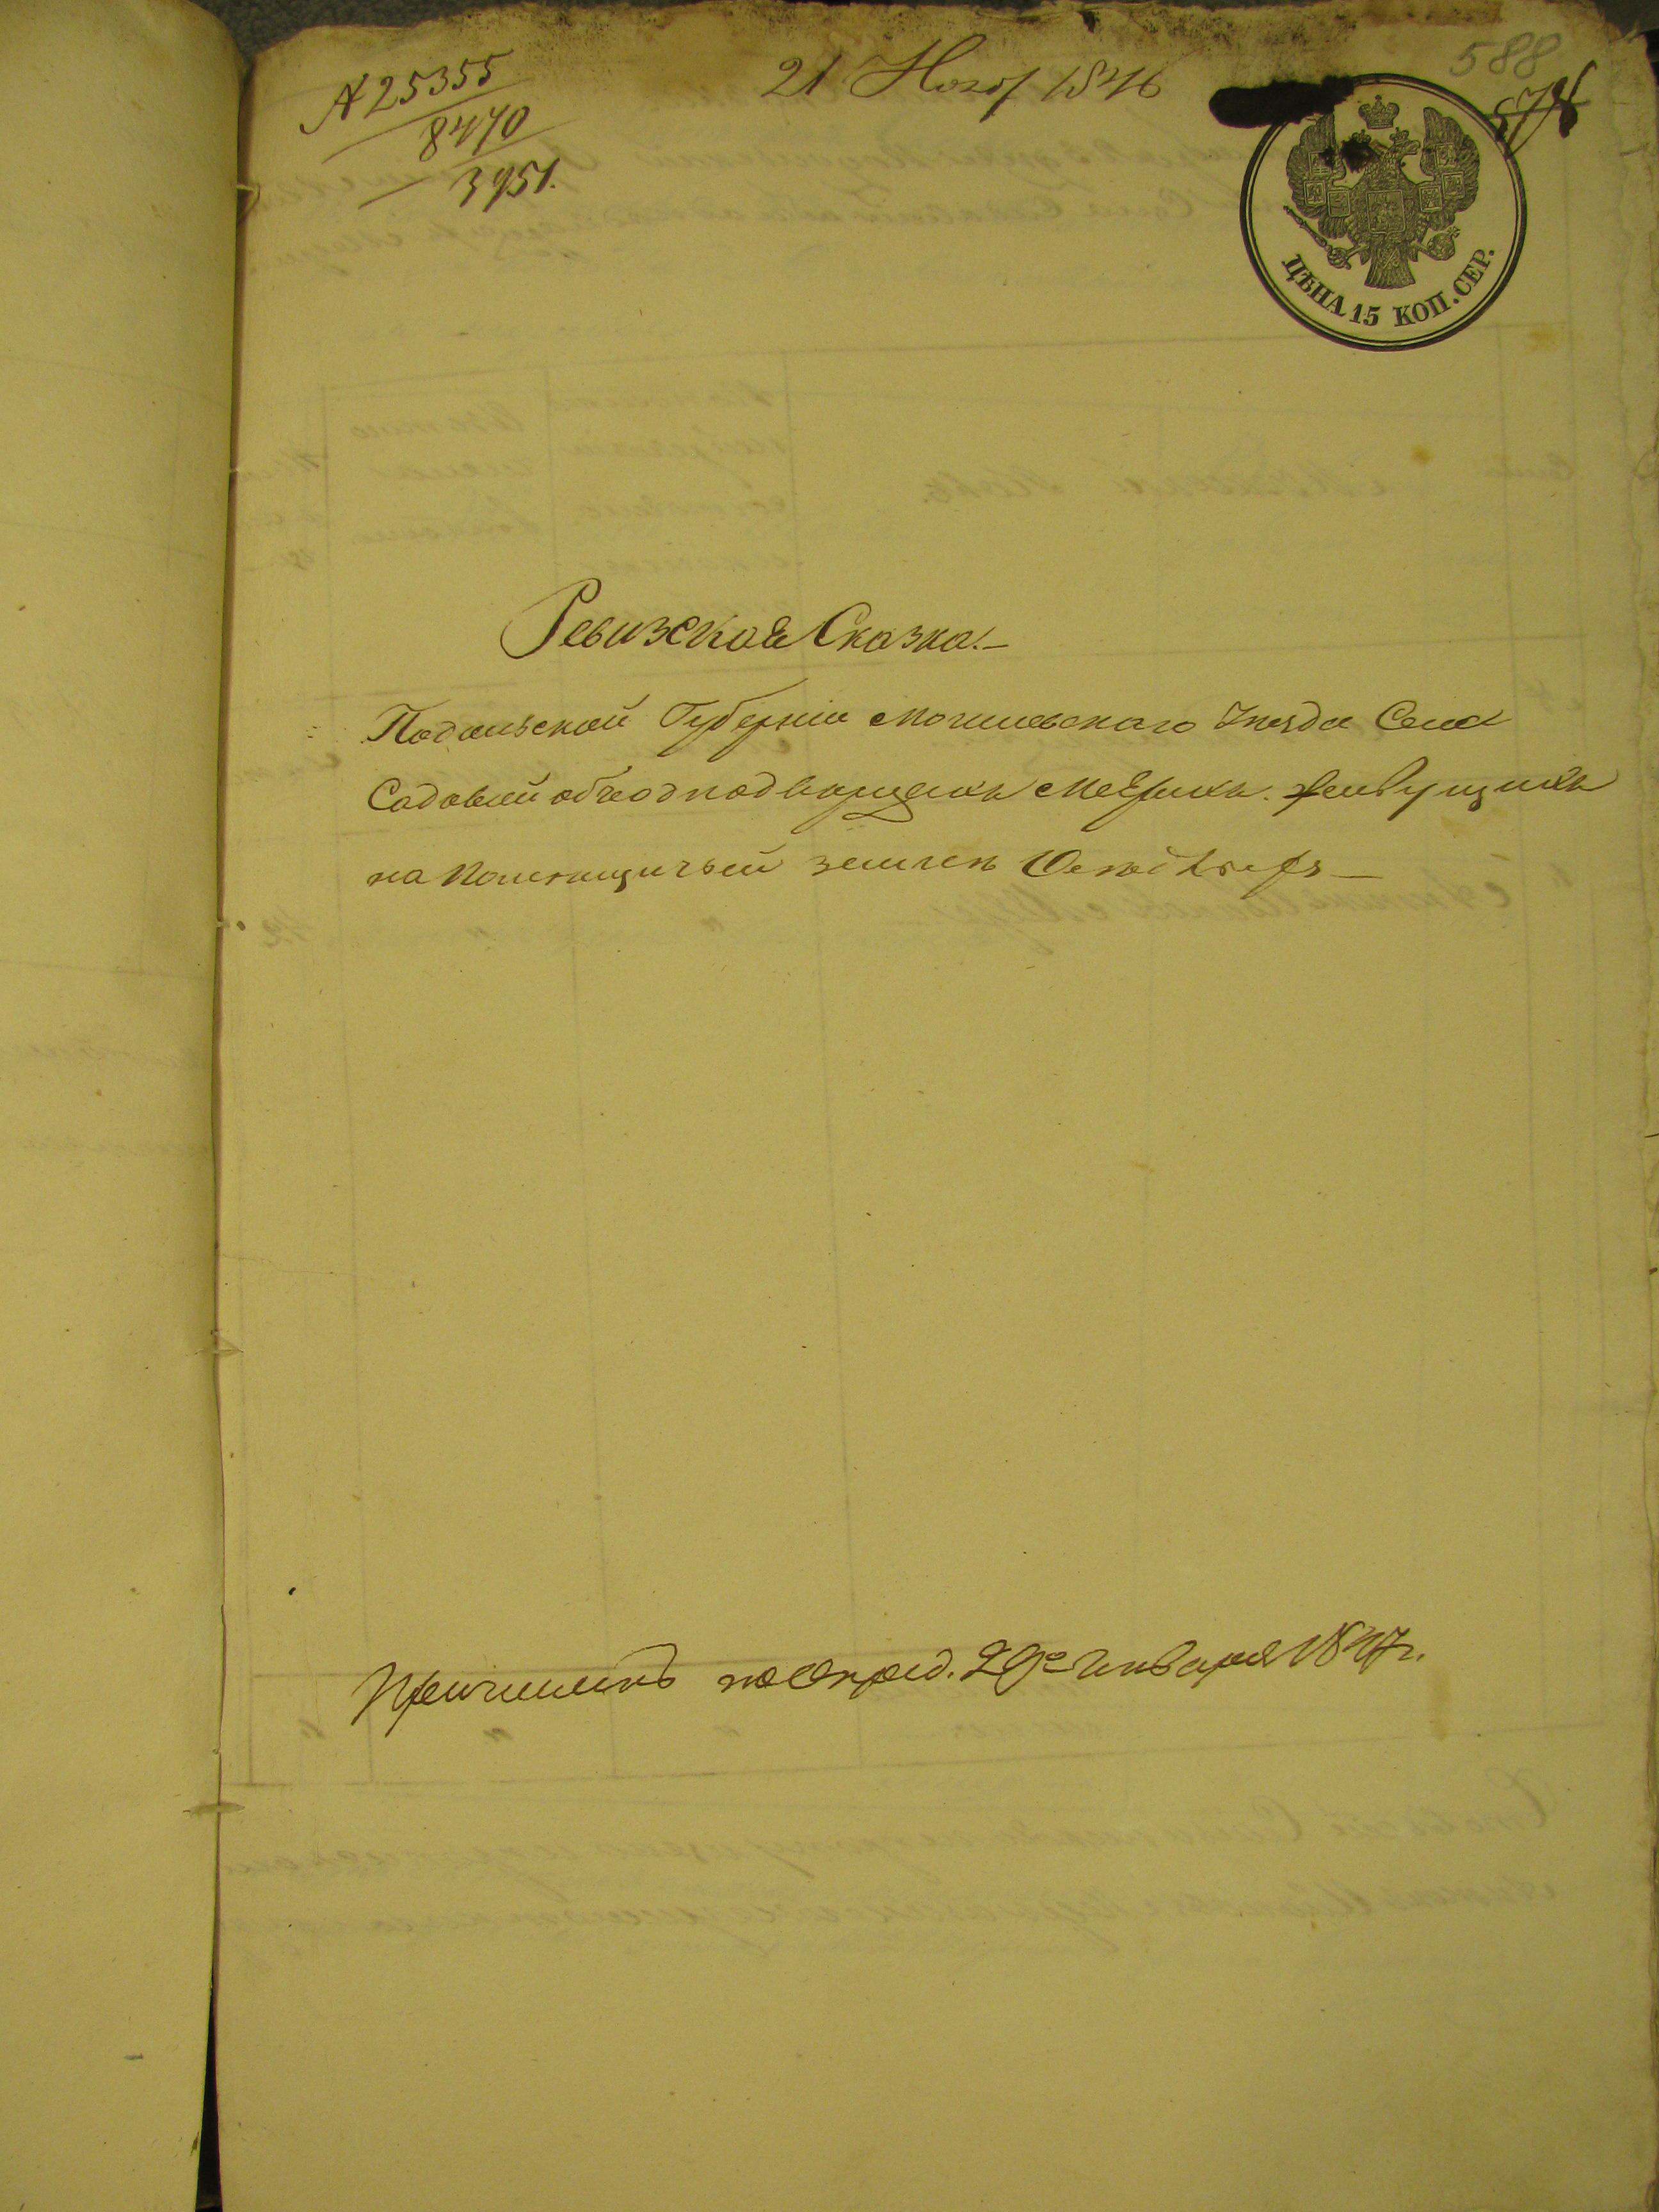 № 25355
8470
3951.
21 Нояб 1846
588
578
ЦѢНА 15 КОП. СЕР.
Ревизская Сказка.—
Подольской Губерніи Могилевскаго Уѣзда Села
Садовой объ однодворцахъ живущихъ
на Помѣщичьей землѣ
по Опред. 29го Января 1847г.